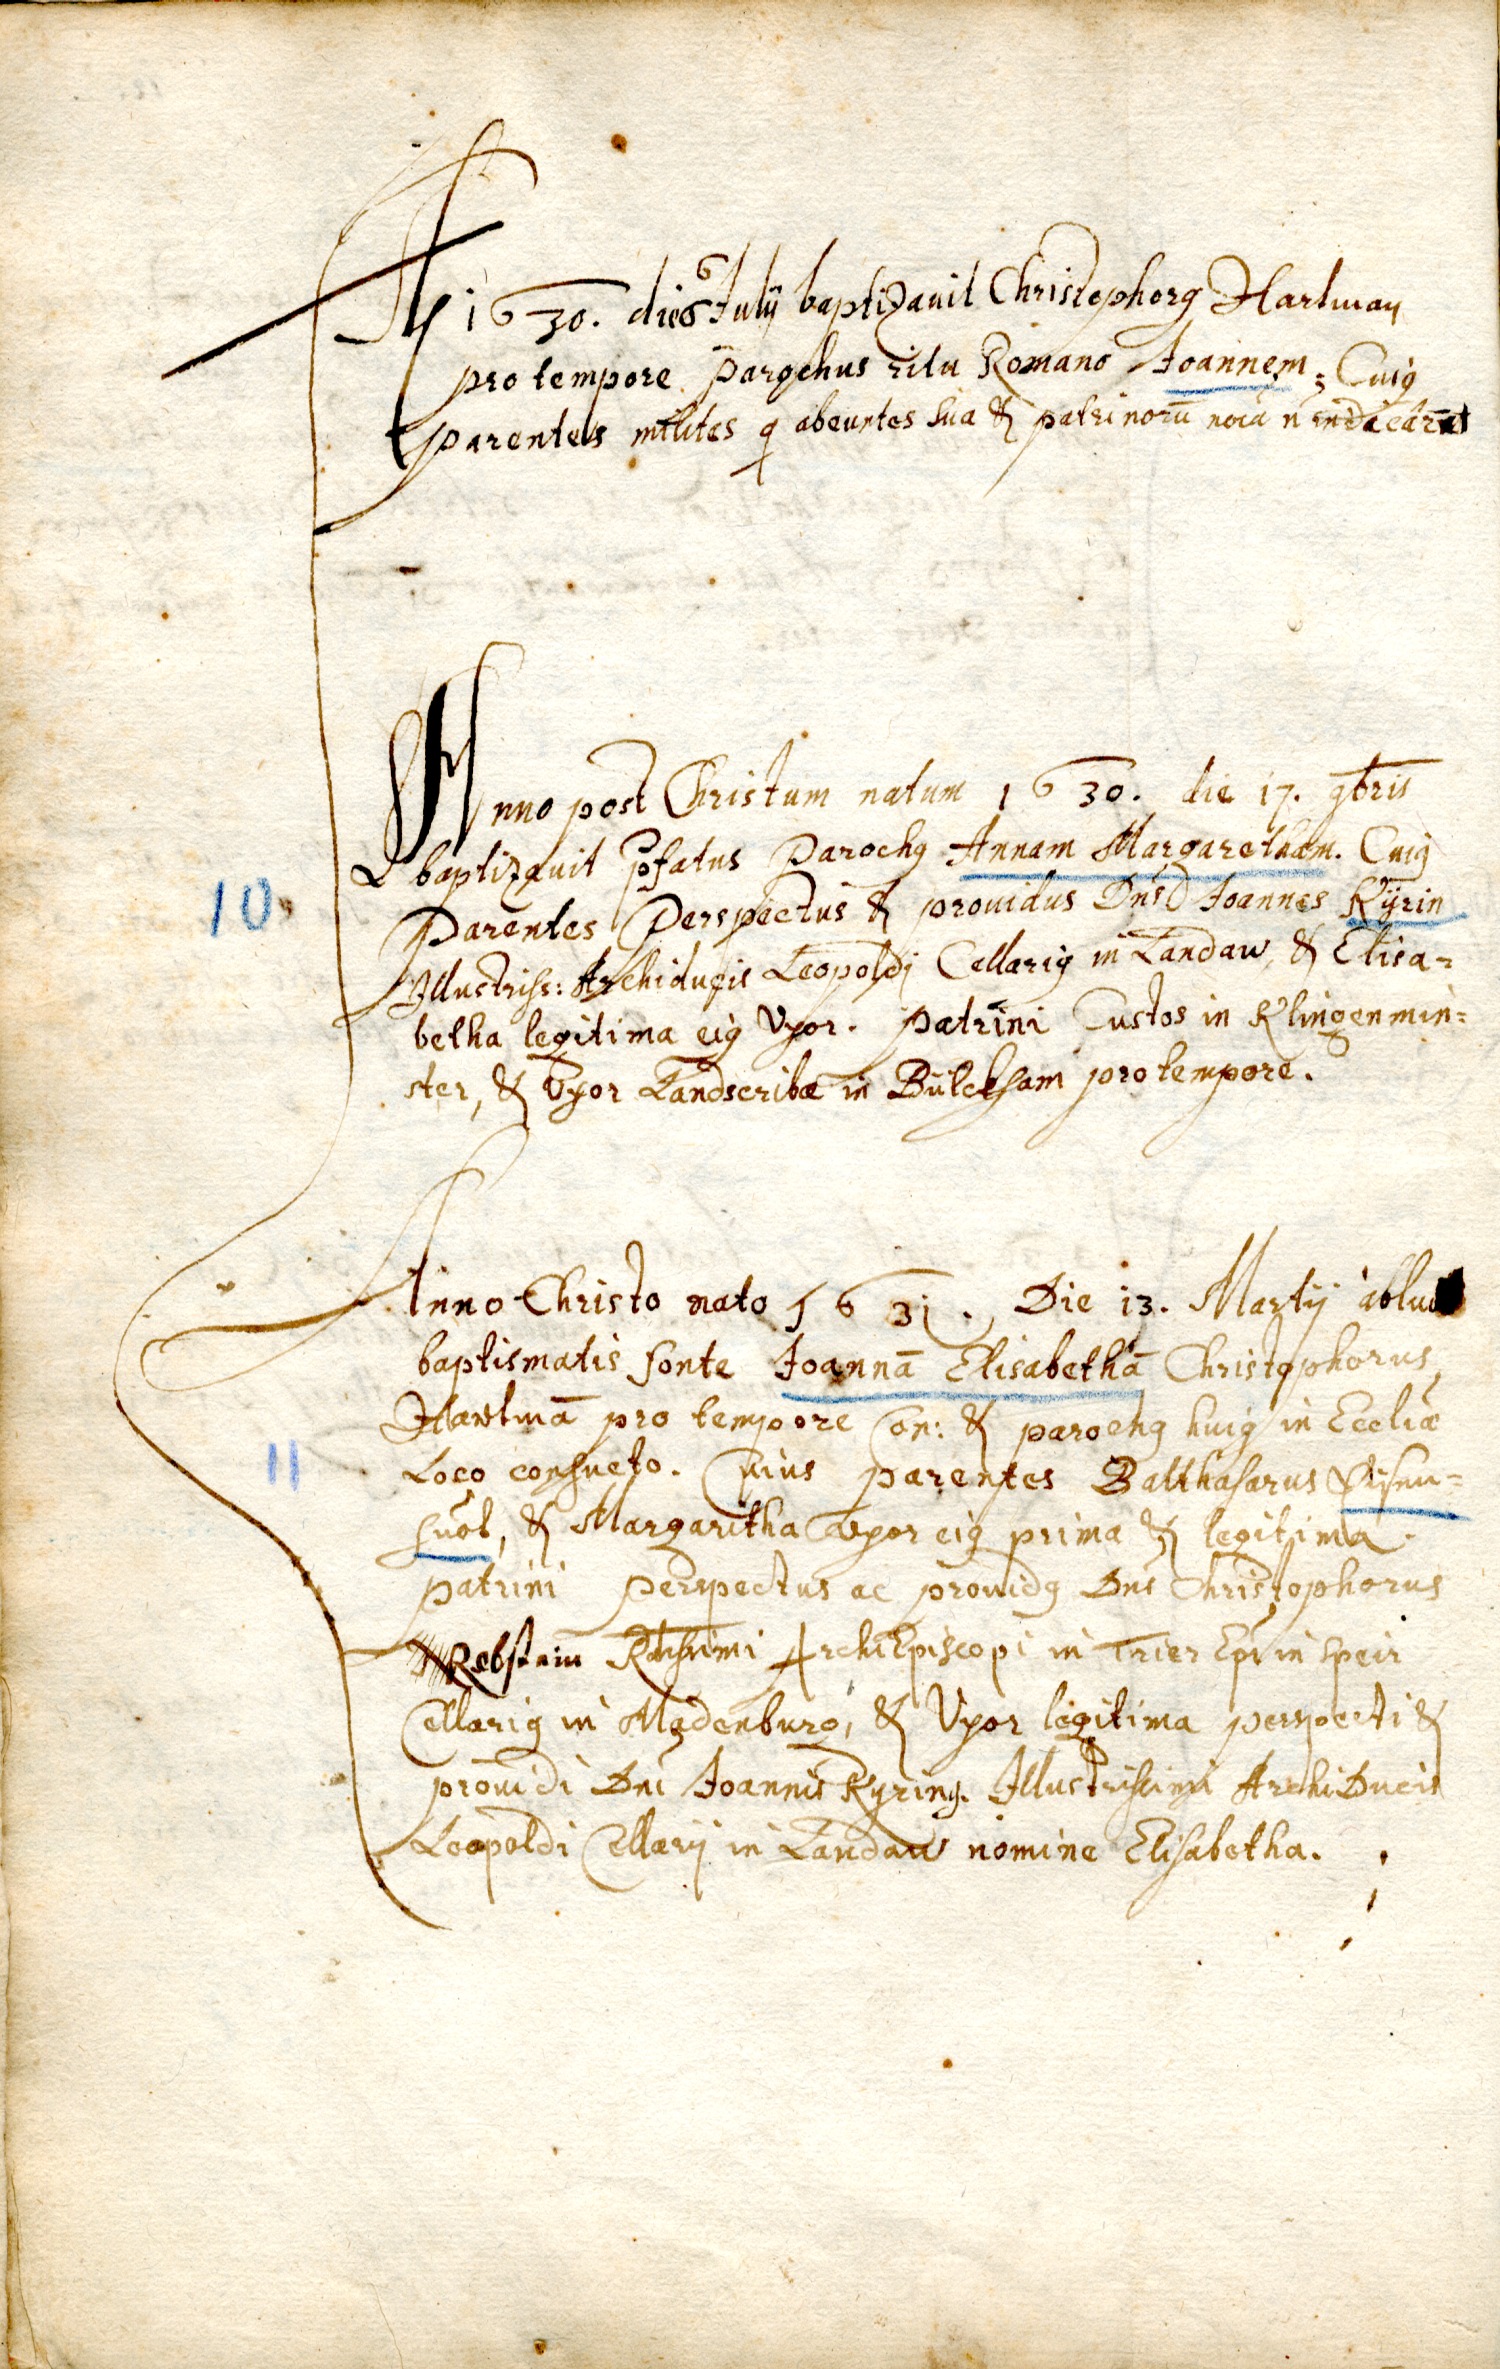 Aō 1630. die 6 Julij baptizauit Christophorg Hartman
pro tempore Parochus ritu Romano Joannem; Cuig
Parentes milites q abeuntes sua & patrinorū noīa n̄ indicarūt
Anno post Christum natum 1630. die 17. 9bris
baptizauit p̄fatus Parochg Annam Margaretham. Cuig
10. Parentes Perspectus & prouidus Dns Joannes Kÿrin
Illustriss: Archiducis Leopoldj Cellarig in Landaw, & Elisa=
betha legitima eig Vxor. Patrini Custos in Klingenmin=
ster, & Vxor Landscribæ in pro tempore.
Anno Christo nato 1631. Die 13. Martij abluit
baptismatis fonte Joannā Elisabethā Christophorus
Hartmā pro tempore Con: & parochg huig in Eccliæ
11 Loco consueto. Cuius parentes Balthasarus
& Margaritha vxor eig prima & legitima.
Patrini Perspectus ac prouidg Dns Christophorus
Rebstain Rdissimi ArchiEpiscopi in Trier Epi in Speir
Cellarig in Madenburg, & Vxor legitima perspecti &
prouidi Dni Joannis Kyring. Illustrissimi ArchiDucis
Leopoldi Cellarij in Landaw nomine Elisabetha.